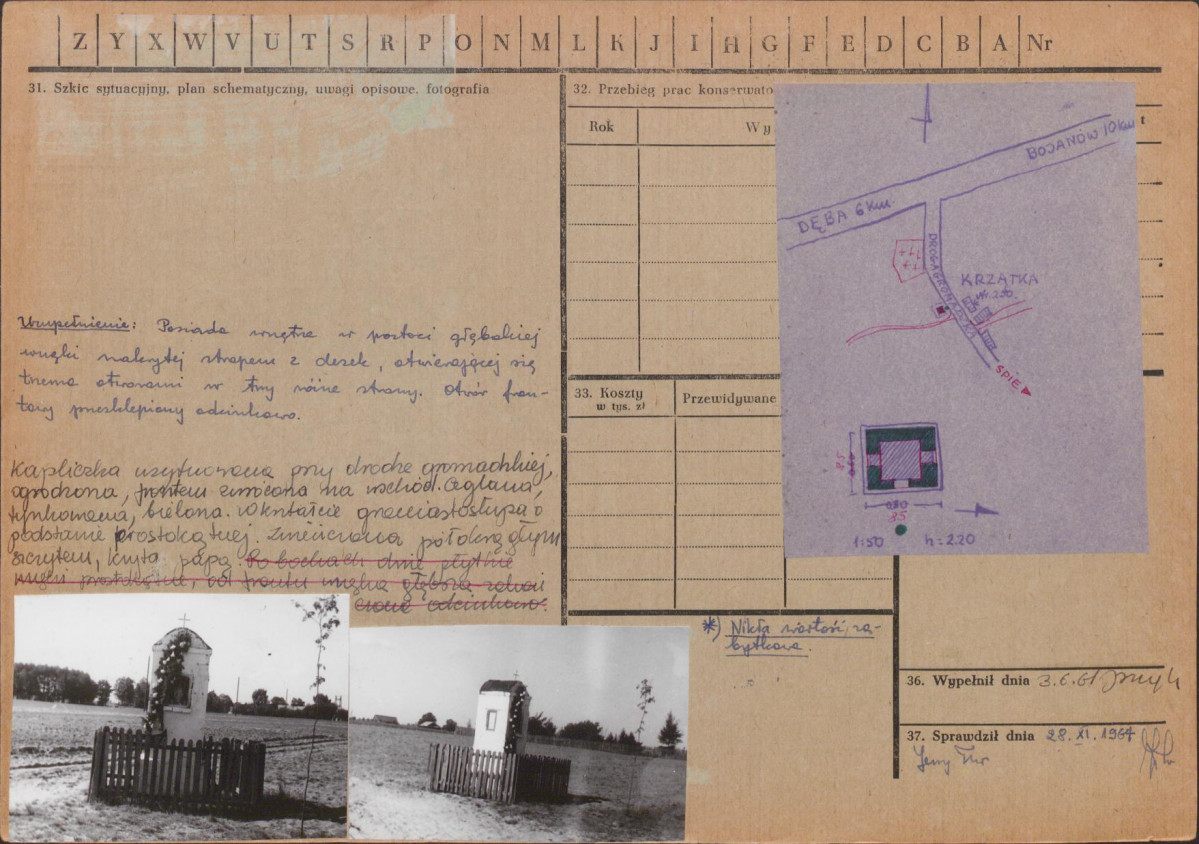 Z Y X W V U T S R P O N M L K J I H G F E D C B A Nr
31. Szkic sytuacyjny, plan schematyczny, uwagi opisowe, fotografia
Uzupełnienie: Posiada wnętrze w postaci głębokiej
wnęki nakrytej stropem z desek, otwierającej się
trzema otworami w trzy różne strony. Otwór fron-
towy przesklepiony odcinkowo.
Kapliczka usytuowana przy drodze gromadzkiej,
ogrodzona, frontem zwrócona na wschód. Ceglana,
tynkowana, bielona. W kształcie graniastosłupa o
podstawie prostokątnej. Zwieńczona półokrągłym
szczytem, kryta papą. Po bochach dwie płytkie
wnęki prostokątne, od frontu wnęka głębsza
odcinkowo.
32. Przebieg prac konserwato
Rok
Wy
t
33. Koszty
w tys. zł
Przewidywane
BOJANÓW 10 km
DĘBA 6 km.
DROGA GROMADZKA
KRZĄTKA
Nr. 250.
SPIE
85
0.80
85
1:50 h=2.20
*) Nikła wartość za-
bytkowa.
36. Wypełnił dnia 3.6.61
37. Sprawdził dnia 28. XI. 1964
Jerzy